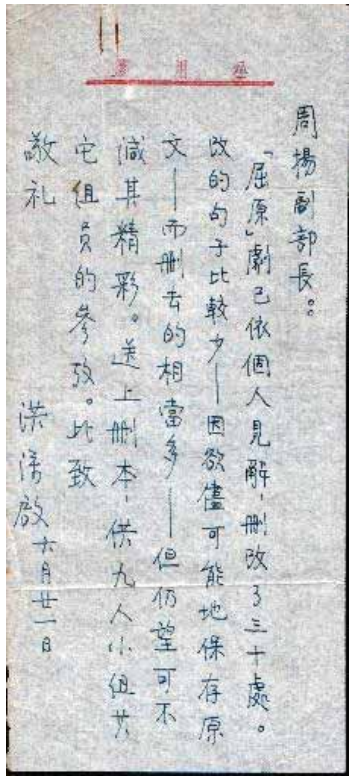 周揚副部長：
「屈原」劇已依個人見解，刪改了三十處。
改的句子比較少——因欲儘可能地保存原
文——而刪去的相當多——但仍望可不
減其精彩。送上刪本，供九人小组其
它组员的参攷。此致
敬礼
洪深啟 六月廿一日